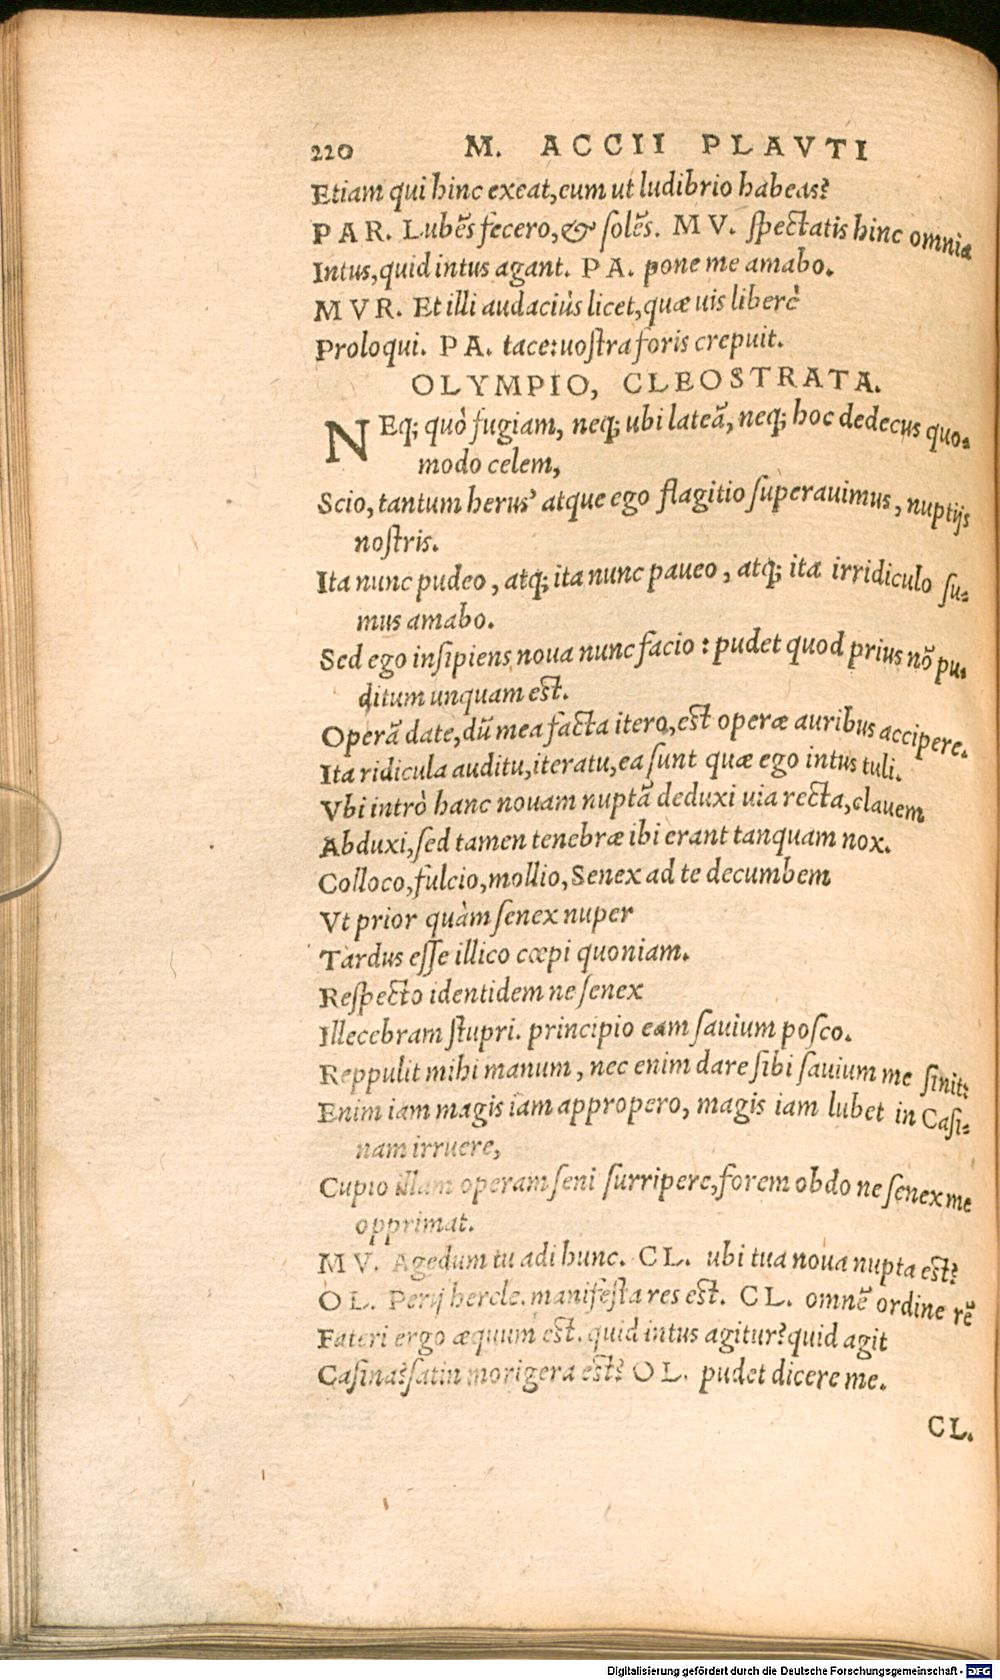 220 M. ACCII PLAVTI
Etiam qui hinc exeat, eum ut ludibrio habeas?
PAR. Lubẽs fecero, & solẽs. MV. spectatis hinc omnia
Intus, quid intus agant. PA. pone me amabo.
MVR. Et illi audaciùs licet, quæ uis liberè
Proloqui. PA. tace: uostra foris crepuit.
OLYMPIO, CLEOSTRATA.
NEq; quò fugiam, neq; ubi lateã, neq; hoc dedecus quo-
modo celem,
Scio, tantum herus' atque ego flagitio superauimus, nuptijs
nostris.
Ita nunc pudeo, atq; ita nunc paueo, atq; ita irridiculo su-
mus amabo.
Sed ego insipiens noua nunc facio: pudet quod prius nõ pu-
ditum unquam est.
Operã date, dũ mea facta itero, est operæ auribus accipere.
Ita ridicula auditu, iteratu, ea sunt quæ ego intus tuli.
Vbi intrò hanc nouam nuptã deduxi uia recta, clauem
Abduxi, sed tamen tenebræ ibi erant tanquam nox.
Colloco, fulcio, mollio, Senex ad te decumbem
Vt prior quàm senex nuper
Tardus esse illico cœpi quoniam.
Respecto identidem ne senex
Illecebram stupri. principio eam sauium posco.
Reppulit mihi manum, nec enim dare sibi sauium me sinit:
Enim iam magis iam appropero, magis iam lubet in Casi-
nam irruere,
Cupio illam operam seni surripere, forem obdo ne senex me
opprimat.
MV. Agedum tu adi hunc. CL. ubi tua noua nupta est?
OL. Perij hercle. manifesta res est. CL. omnẽ ordine rẽ
Fateri ergo æquum est. quid intus agitur? quid agit
Casina? satin morigera est? OL. pudet dicere me.
CL.
Digitalisierung gefördert durch die Deutsche Forschungsgemeinschaft - DFG